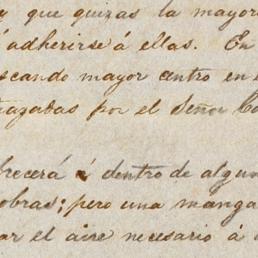 y que quizas la mayor
adherirse á ellas. En
scando mayor centro en
trazadas por el Señor Co
frecerá é dentro de algun
obras; pero una manga
ar el aire necesario á